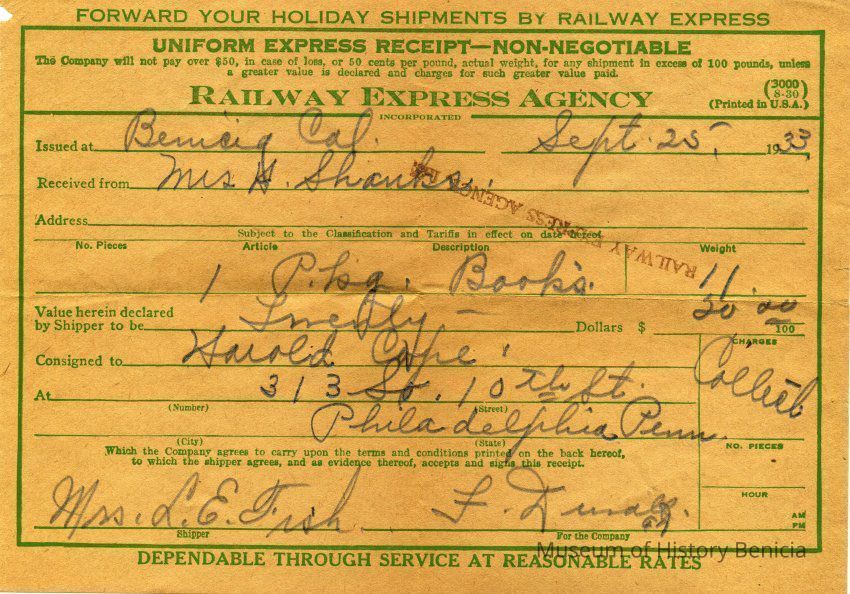 FORWARD YOUR HOLIDAY SHIPMENTS BY RAILWAY EXPRESS
UNIFORM EXPRESS RECEIPT—NON-NEGOTIABLE
The Company will not pay over $50, in case of loss, or 50 cents per pound, actual weight, for any shipment in excess of 100 pounds, unless
a greater value is declared and charges for such greater value paid.
(3000)
8-30
RAILWAY EXPRESS AGENCY
(Printed in U.S.A.)
INCORPORATED
Issued at Benicia Cal. Sept. 25, 1933
Received from Mrs H. Shanks.
RAILWAY EXPRESS AGENCY
Address
Subject to the Classification and Tariffs in effect on date hereof.
No. Pieces Article Description Weight
1 Pkg. Books. 11
Value herein declared
by Shipper to be Twenty — Dollars $ 20 00/100
CHARGES
Consigned to Harold Cope Collect
At 313 So. 10th St.
(Number) (Street)
Philadelphia Penn.
(City) (State)
NO. PIECES
Which the Company agrees to carry upon the terms and conditions printed on the back hereof,
to which the shipper agrees, and as evidence thereof, accepts and signs this receipt.
HOUR
AM
PM
Mrs. L. E. Fish F.
Shipper For the Company
Museum of History Benicia
DEPENDABLE THROUGH SERVICE AT REASONABLE RATES